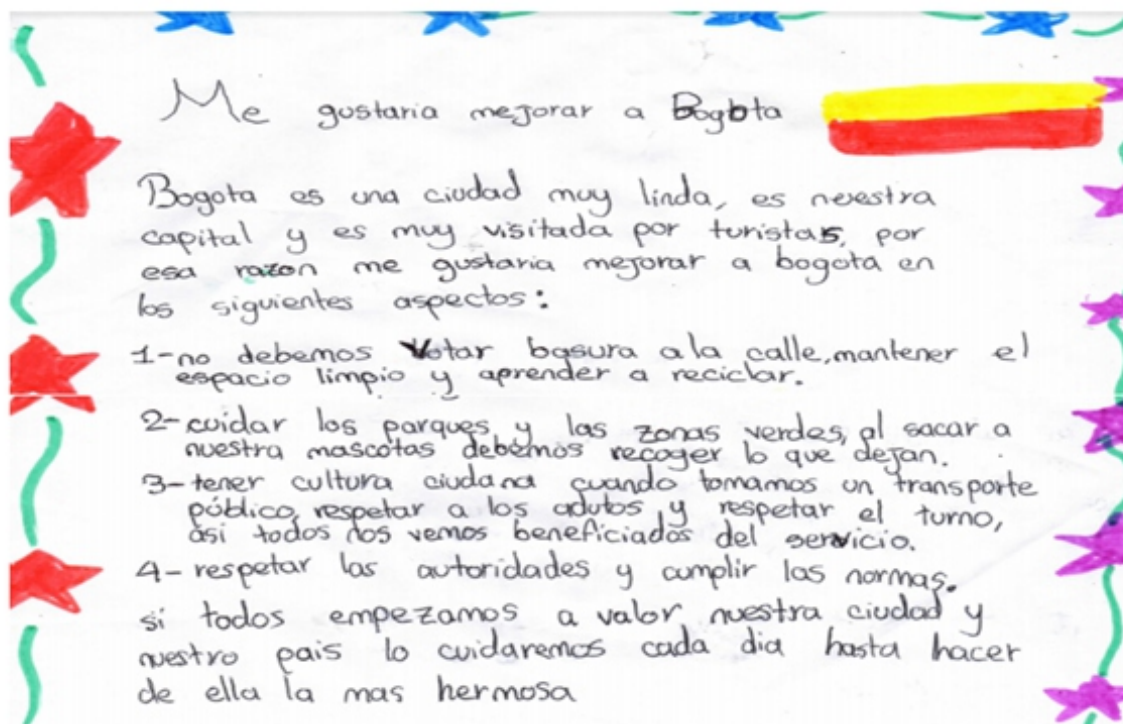 Me gustaria mejorar a Bogota
Bogota es una ciudad muy linda, es nuestra
capital y es muy visitada por turistas, por
esa razon me gustaria mejorar a bogota en
los siguientes aspectos:
1-no debemos Votar basura a la calle, mantener el
espacio limpio y aprender a reciclar.
2-cuidar los parques y las zonas verdes, al sacar a
nuestra mascotas debemos recoger lo que dejan.
3-tener cultura ciudana cuando tomamos un transporte
público, respetar a los adutos y respetar el turno,
asi todos nos vemos beneficiados del servicio.
4-respetar las autoridades y cumplir las normas.
si todos empezamos a valor nuestra ciudad y
nuestro pais lo cuidaremos cada dia hasta hacer
de ella la mas hermosa